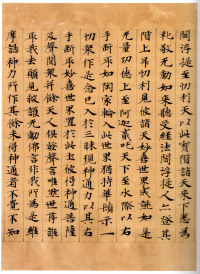 閻浮提至忉利天以此寶階諸天來下悉為
礼敬无動如來聽受經法閻浮提人亦登其
階上昇忉利見彼諸天妙喜世界成就如是
无量功德上至阿迦膩吒天下至水際以右
手斷取如陶家輪入此世界猶持華鬘示一
切衆作是念已入於三昧現神通力以其右
手斷取妙喜世界置於此土彼得神通菩薩
及聲聞衆并餘天人俱發聲言唯然世尊誰
取我去願見救護无動佛言非我所為是維
摩詰神力所作其餘未得神通者不覺不知